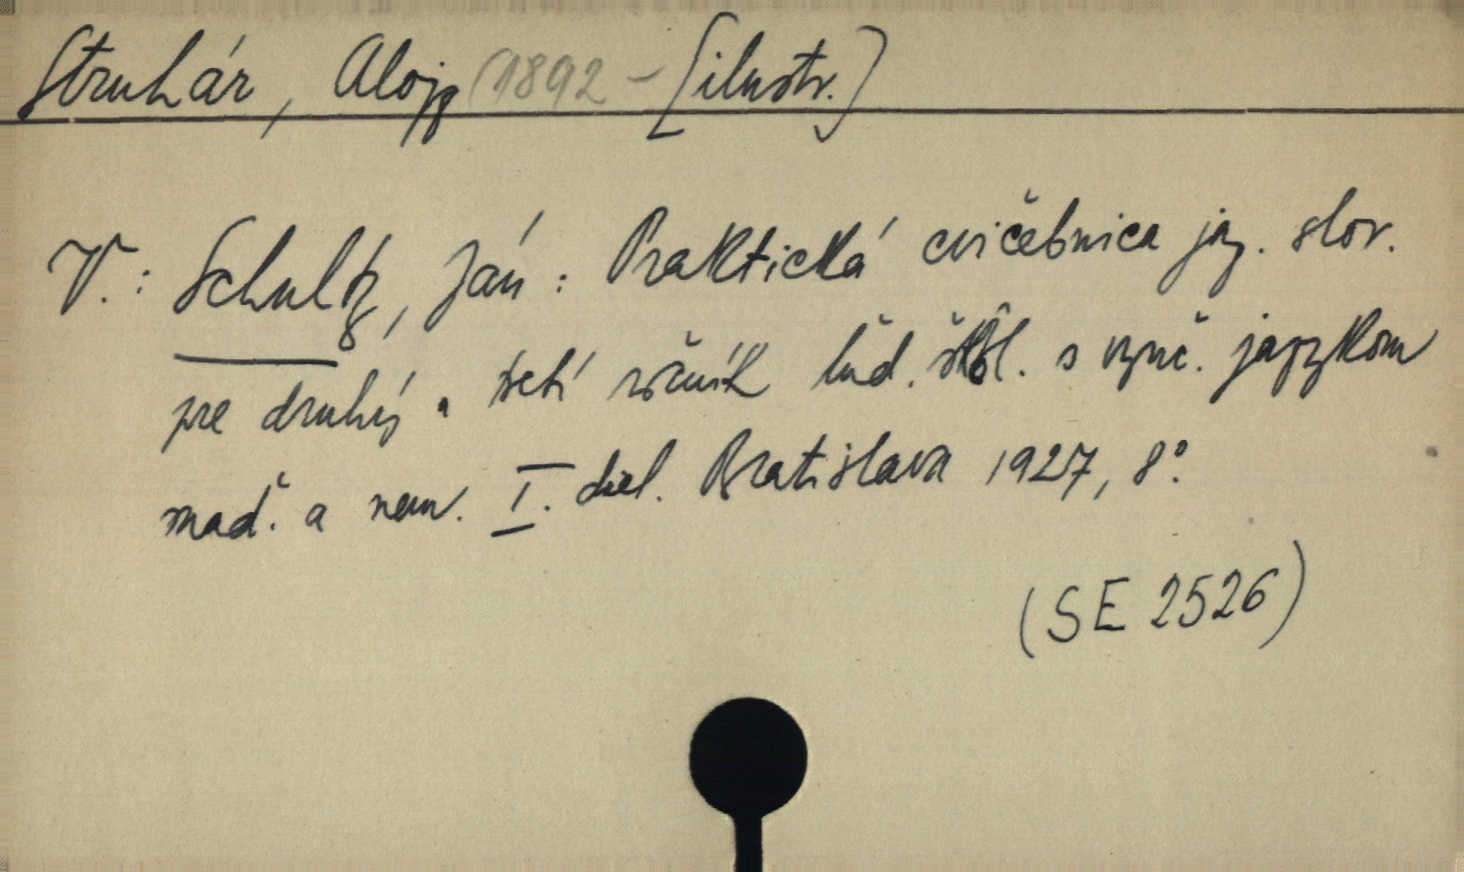 Struhár, Alojz (1892 - [ilustr.]
V.: Schultz, Ján: Praktická cvičebnica jaz. slov.
pre druhý a tretí ročník ľud. škôl. s vyuč. jazykom
maď. a nem. I. diel. Bratislava 1927, 8°.
(SE 2526)